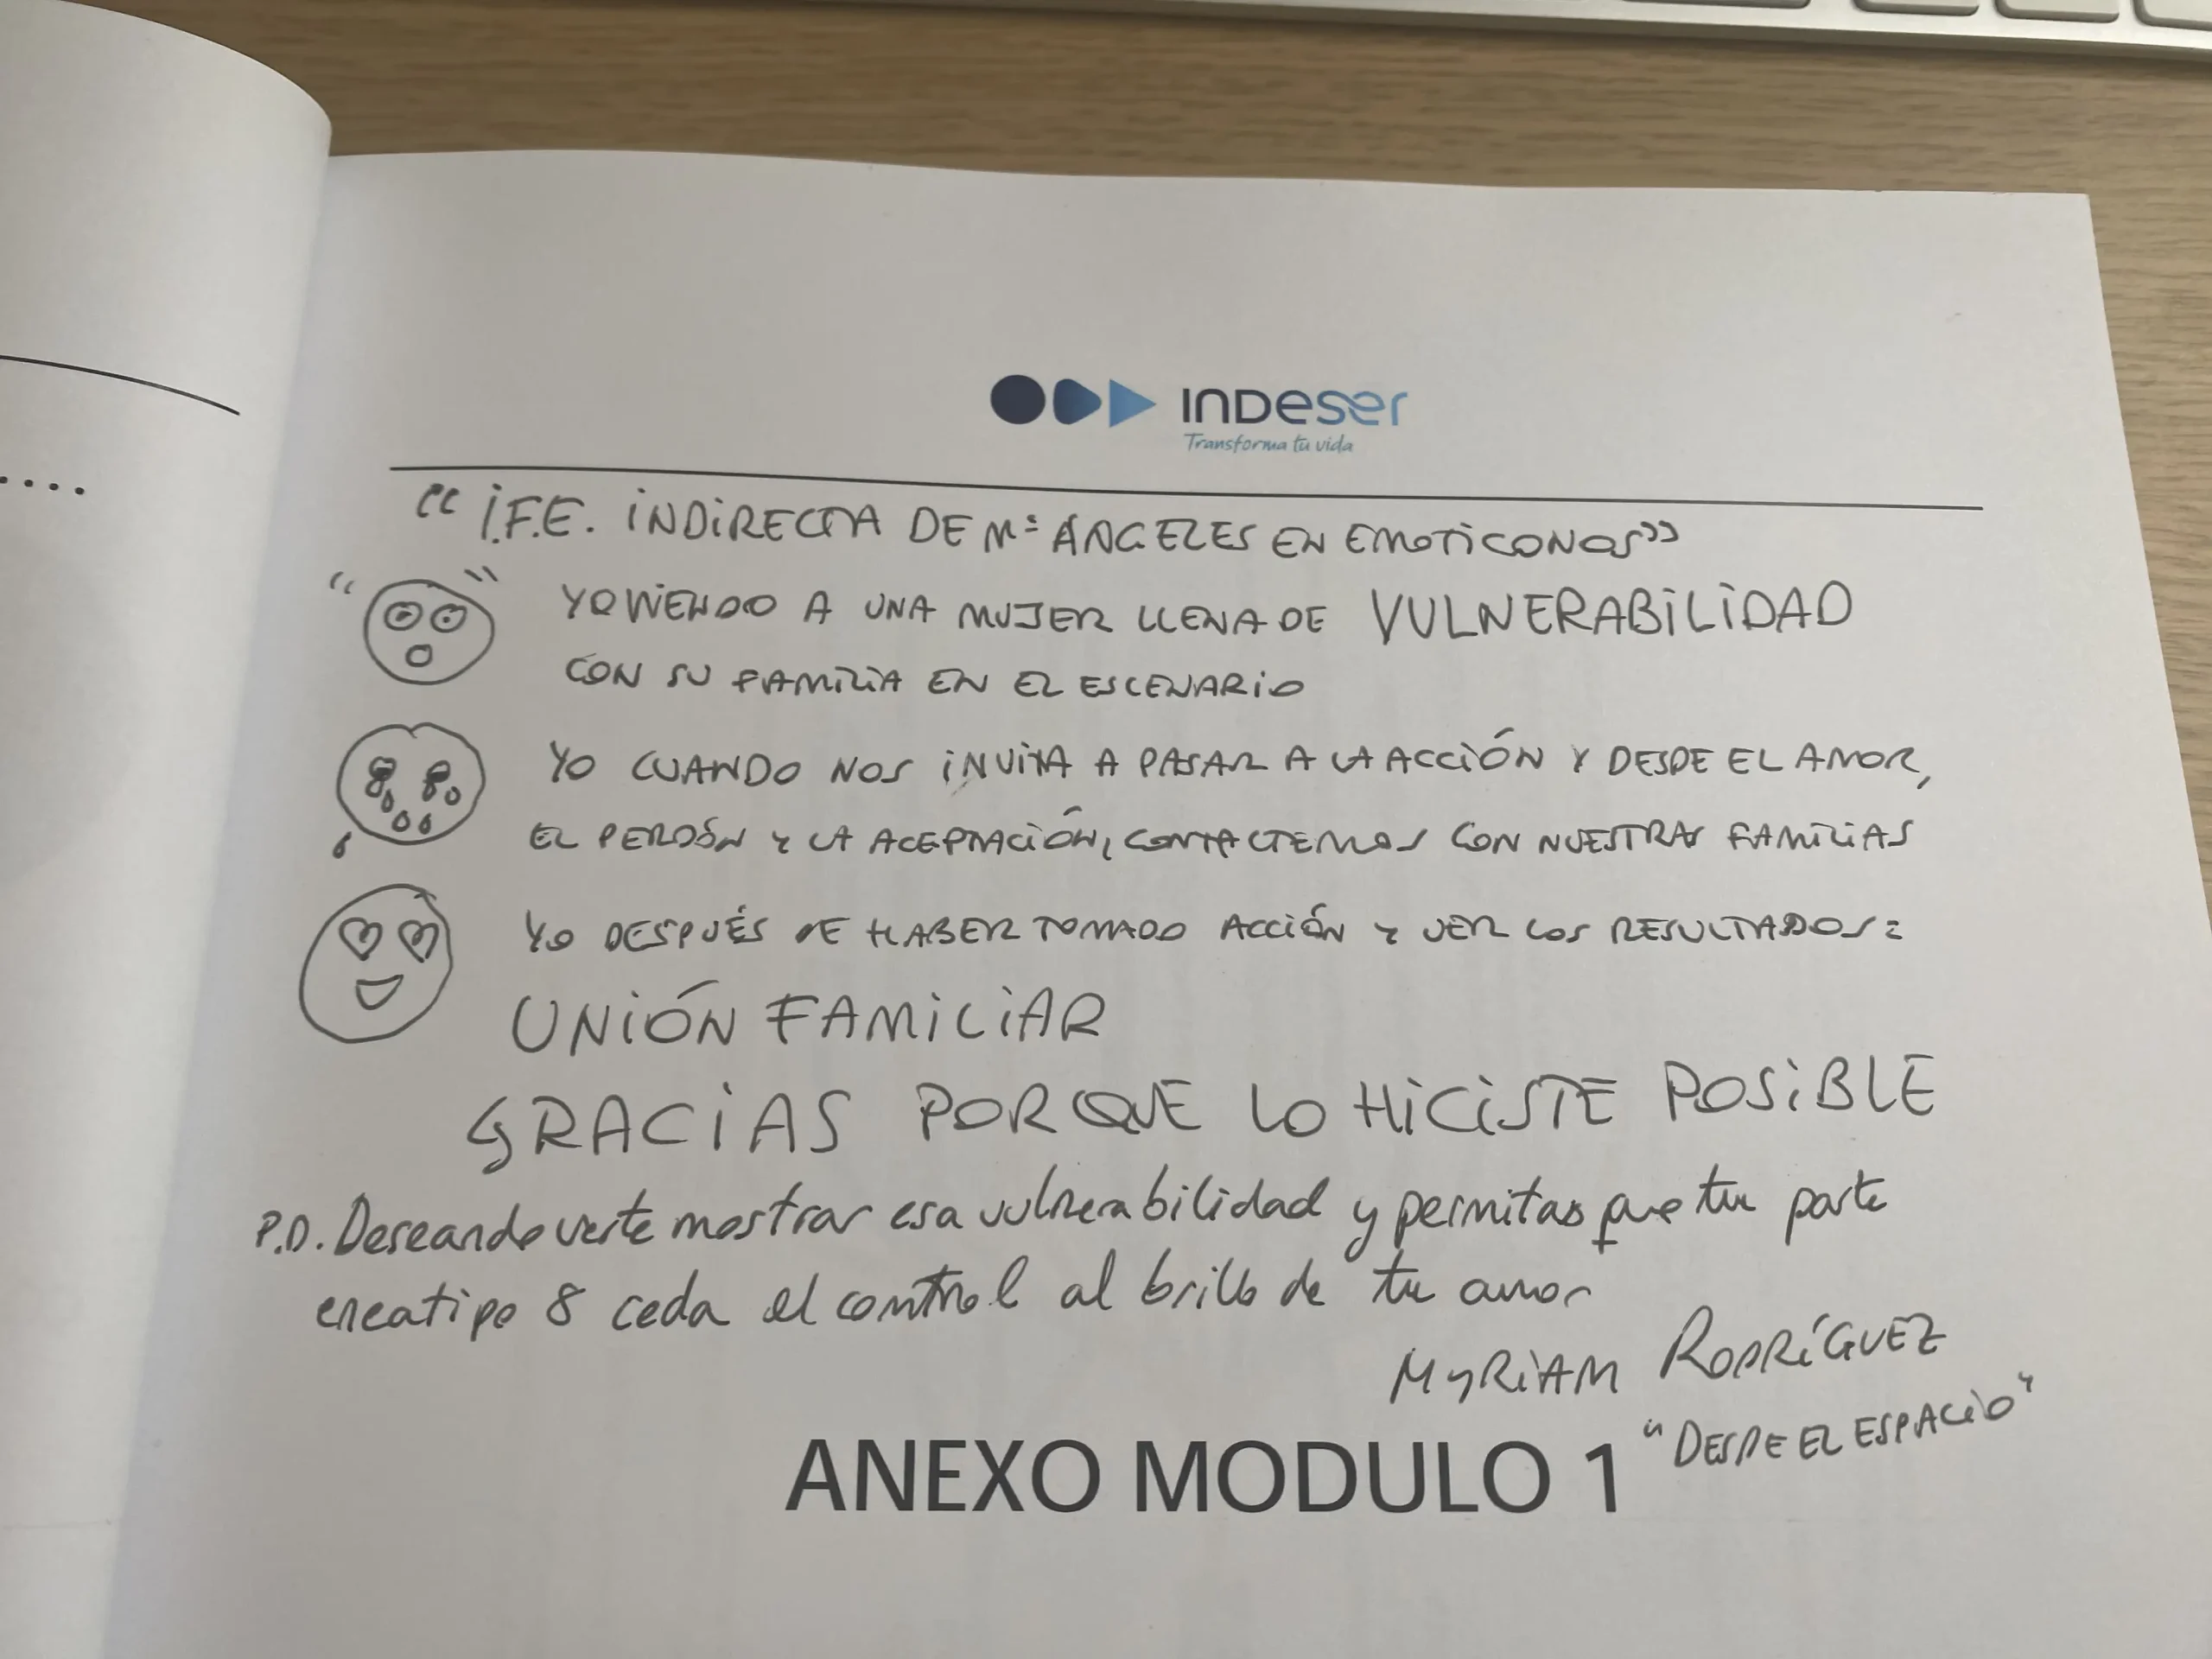 INDESER
Transforma tu vida
"I.F.E. INDIRECTA DE Mª ÁNGELES EN EMOTICONOS"
YO VIENDO A UNA MUJER LLENA DE VULNERABILIDAD
CON SU FAMILIA EN EL ESCENARIO
YO CUANDO NOS INVITA A PASAR A LA ACCIÓN Y DESDE EL AMOR,
EL PERDÓN Y LA ACEPTACIÓN, CONTACTEMOS CON NUESTRAS FAMILIAS
YO DESPUÉS DE HABER TOMADO ACCIÓN Y VER LOS RESULTADOS:
UNIÓN FAMILIAR
GRACIAS PORQUE LO HICISTE POSIBLE
P.D. Deseando verte mostrar esa vulnerabilidad y permitas que tu parte
eneatipo 8 ceda el control al brillo de tu amor
MYRIAM RODRÍGUEZ
"DESDE EL ESPACIO"
ANEXO MODULO 1